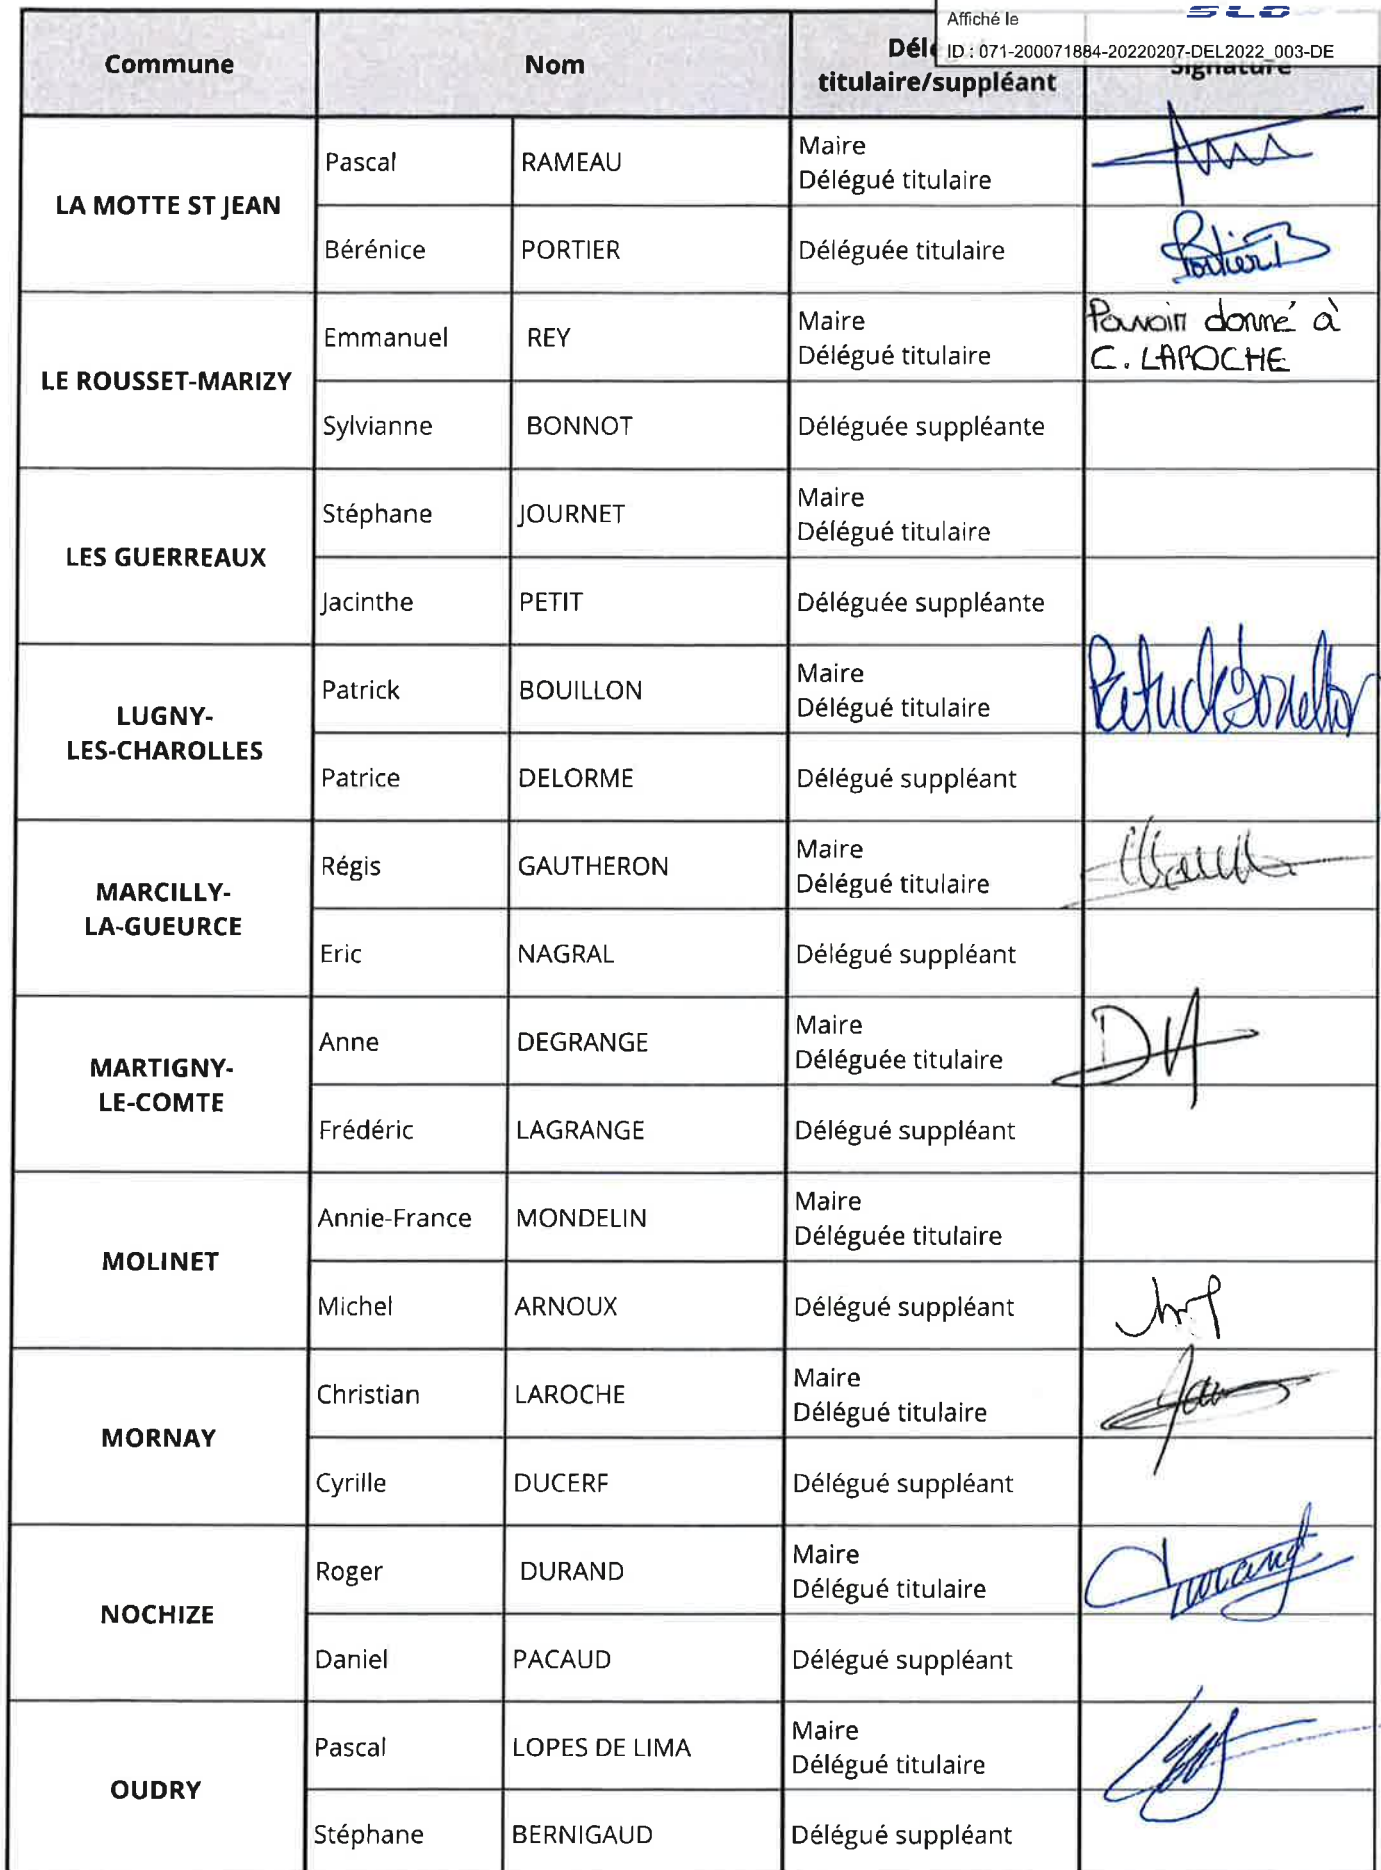 Affiché le
SLO
ID : 071-200071884-20220207-DEL2022_003-DE
Commune
Nom
titulaire/suppléant
Signature
LA MOTTE ST JEAN
Pascal RAMEAU
Maire
Délégué titulaire
Bérénice PORTIER
Déléguée titulaire
Portier B
LE ROUSSET-MARIZY
Emmanuel REY
Maire
Délégué titulaire
Pouvoir donné à
C. LAROCHE
Sylvianne BONNOT
Déléguée suppléante
LES GUERREAUX
Stéphane JOURNET
Maire
Délégué titulaire
Jacinthe PETIT
Déléguée suppléante
LUGNY-
LES-CHAROLLES
Patrick BOUILLON
Maire
Délégué titulaire
Patrice DELORME
Délégué suppléant
MARCILLY-
LA-GUEURCE
Régis GAUTHERON
Maire
Délégué titulaire
Eric NAGRAL
Délégué suppléant
MARTIGNY-
LE-COMTE
Anne DEGRANGE
Maire
Déléguée titulaire
DA
Frédéric LAGRANGE
Délégué suppléant
MOLINET
Annie-France MONDELIN
Maire
Déléguée titulaire
Michel ARNOUX
Délégué suppléant
MORNAY
Christian LAROCHE
Maire
Délégué titulaire
Cyrille DUCERF
Délégué suppléant
NOCHIZE
Roger DURAND
Maire
Délégué titulaire
Durand
Daniel PACAUD
Délégué suppléant
OUDRY
Pascal LOPES DE LIMA
Maire
Délégué titulaire
Stéphane BERNIGAUD
Délégué suppléant